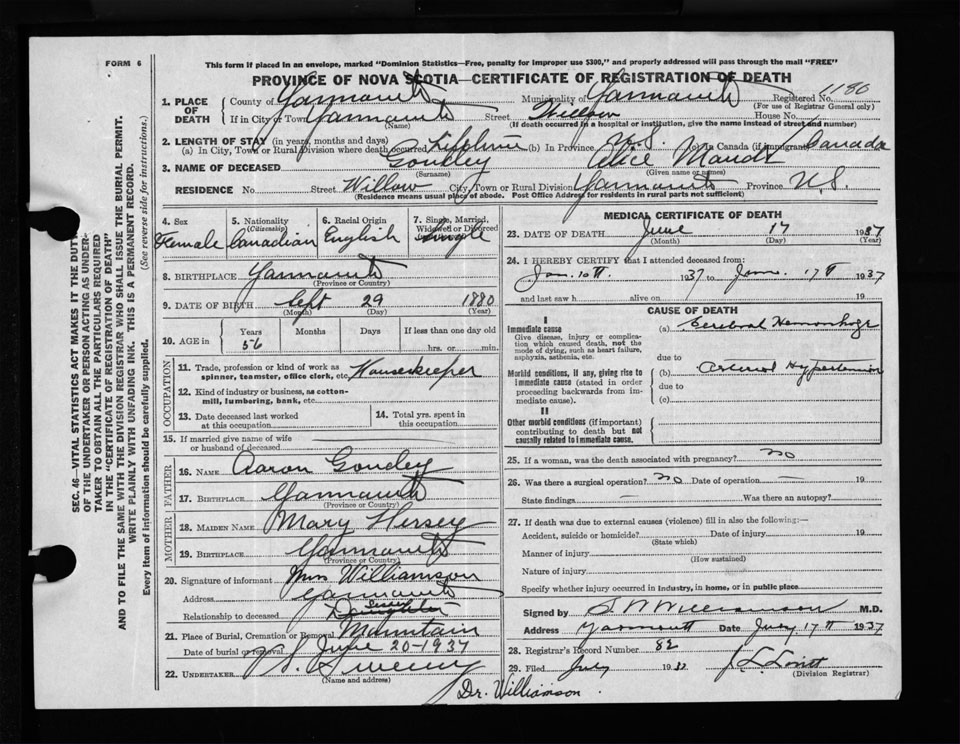 FORM 6
This form if placed in an envelope, marked "Dominion Statistics—Free, penalty for improper use $300," and properly addressed will pass through the mail "FREE"
PROVINCE OF NOVA SCOTIA—CERTIFICATE OF REGISTRATION OF DEATH
SEC. 46—VITAL STATISTICS ACT MAKES IT THE DUTY
OF THE UNDERTAKER OR PERSON ACTING AS UNDER-
TAKER TO OBTAIN ALL THE PARTICULARS REQUIRED
IN THE "CERTIFICATE OF REGISTRATION OF DEATH"
AND TO FILE THE SAME WITH THE DIVISION REGISTRAR WHO SHALL ISSUE THE BURIAL PERMIT.
WRITE PLAINLY WITH UNFADING INK. THIS IS A PERMANENT RECORD.
Every item of information should be carefully supplied. (See reverse side for instructions.)
1. PLACE OF DEATH
County of Yarmouth Municipality of Yarmouth Registered No. 1186
(For use of Registrar General only)
If in City or Town Yarmouth Street Willow House No.
(Name) (If death occurred in a hospital or institution, give the name instead of street and number)
2. LENGTH OF STAY (in years, months and days)
(a) In City, Town or Rural Division where death occurred Lifetime (b) In Province N.S. (c) In Canada (if immigrant) Canada
3. NAME OF DECEASED Goudey Alice Maude
(Surname) (Given name or names)
RESIDENCE No. Street Willow City, Town or Rural Division Yarmouth Province N.S.
(Residence means usual place of abode. Post Office Address for residents in rural parts not sufficient)
4. Sex Female
5. Nationality (Citizenship) Canadian
6. Racial Origin English
7. Single, Married, Widowed or Divorced Single
8. BIRTHPLACE Yarmouth
(Province or Country)
9. DATE OF BIRTH Sept 29 1880
(Month) (Day) (Year)
10. AGE in Years 56 Months Days If less than one day old
hrs. or min.
OCCUPATION
11. Trade, profession or kind of work as spinner, teamster, office clerk, etc. Housekeeper
12. Kind of industry or business, as cotton-mill, lumbering, bank, etc.
13. Date deceased last worked at this occupation
14. Total yrs. spent in this occupation
15. If married give name of wife or husband of deceased
FATHER
16. NAME Aaron Goudey
17. BIRTHPLACE Yarmouth
(Province or Country)
MOTHER
18. MAIDEN NAME Mary Hersey
19. BIRTHPLACE Yarmouth
(Province or Country)
20. Signature of informant Mrs Williamson
Address Yarmouth
Relationship to deceased Daughter
21. Place of Burial, Cremation or Removal Mountain
Date of burial or removal June 20-1937
22. UNDERTAKER Sweeny
(Name and address)
MEDICAL CERTIFICATE OF DEATH
23. DATE OF DEATH June 17 1937
(Month) (Day) (Year)
24. I HEREBY CERTIFY that I attended deceased from:
Jan. 10th 1937 to June 17th 1937
and last saw h alive on 19
CAUSE OF DEATH
I
Immediate cause
Give disease, injury or complication which caused death, not the mode of dying, such as heart failure, asphyxia, asthenia, etc.
(a) Cerebral Hemorrhage
due to
Morbid conditions, if any, giving rise to immediate cause (stated in order proceeding backwards from immediate cause).
(b) Arterial Hypertension
due to
(c)
II
Other morbid conditions (if important) contributing to death but not causally related to immediate cause.
25. If a woman, was the death associated with pregnancy? no
26. Was there a surgical operation? no Date of operation — 19
State findings — Was there an autopsy?
27. If death was due to external causes (violence) fill in also the following:—
Accident, suicide or homicide? Date of injury 19
(State which)
Manner of injury
(How sustained)
Nature of injury
Specify whether injury occurred in industry, in home, or in public place
Signed by Williamson M.D.
Address Yarmouth Date July 17th 1937
28. Registrar's Record Number 82
29. Filed July 19
(Division Registrar)
Dr. Williamson